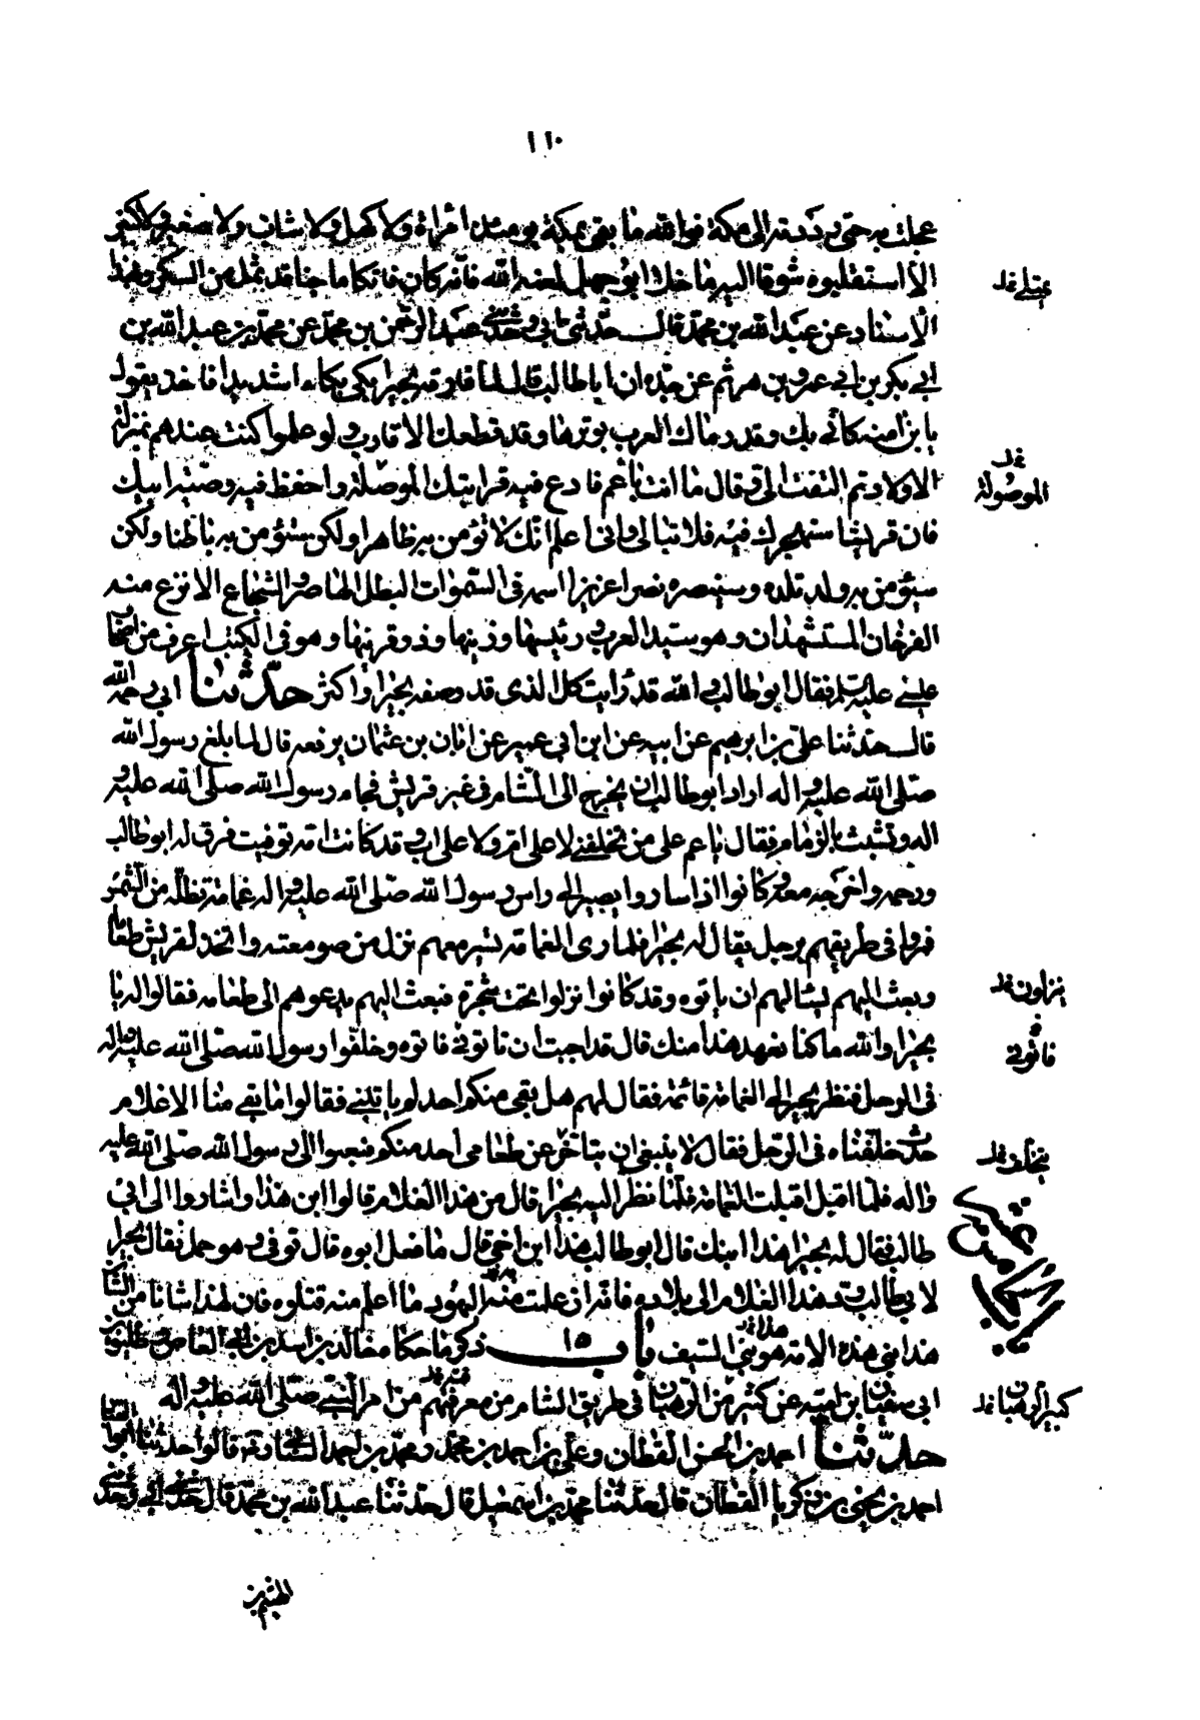 ١١٠
عجلت به حتى رددته الى مكة فوالله ما بقى بمكة يومئذ امرأة ولا كهل ولا شاب ولا صغير ولا كبير
الا استقبلوه شوقا اليه ما خلا ابو جهل لعنه الله فانه كان فاتكا ماجنا قد ثمل من السكر وبهذا
الاسناد عن عبد الله بن محمد قال حدثنى ابى وحدثنى عبد الرحمن بن محمد عن محمد بن عبد الله بن
ابى بكر بن ابى عمرو بن هرثم عن جده ان ابا طالب قال لما فارقه بحيرا بكى بكاء اشديدا فاخذ يقول
يا بن امنه كانى بك وقد رماك العرب بوترها وقد قطعك الاقارب ولو علموا كنت عندهم بمنزلة
الاولاد ثم التفت الى وقال ما انت يا عم فارع فيه قرابتك الموصلة واحفظ فيه وصية ابيك
فان قريشا ستهجرك فيه فلا تبالى وانى اعلم انك لا تؤمن به ظاهرا ولكن ستؤمن به باطنا ولكن
سيؤمن به ولد تلده وسينصره نصرا عزيزا اسمه فى السموات البطل الهاصر والشجاع الانزع منه
الفرخان المستشهدان وهو سيد العرب ورئيسها وزينها وذو قرنيها وهو فى الكتب اعرف من اصحاب
عيسى عليه السلم فقال ابو طالب والله قد رايت كل الذى قد وصفه بحيرا واكثر حدثنا ابى رحمه الله
قال حدثنا على بن ابرهيم عن ابيه عن ابن ابى عمير عن ابان بن عثمان يرفعه قال لما بلغ رسول الله
صلى الله عليه واله اراد ابو طالب ان يخرج الى الشام فى عير قريش فجاء رسول الله صلى الله عليه و
اله وتشبث بالزمام فقال يا عم على من تخلفنى لا على ام ولا على اب وقد كانت امه توفيت فرق له ابو طالب
ورحمه واخرجه معه وكانوا اذا ساروا يصير الى راس رسول الله صلى الله عليه واله غمامة تظله من الشمس
فمروا فى طريقهم برجل يقال له بحيرا فلما راى الغمامة تسير معهم نزل من صومعته واتخذ لقريش طعاما
وبعث اليهم يسالهم ان ياتوه وقد كانوا نزلوا تحت شجرة فبعث اليهم يدعوهم الى طعامه فقالوا له يا
بحيرا والله ما كنا نعهد هذا منك قال قد احببت ان تاتونى فاتوه وخلفوا رسول الله صلى الله عليه واله
فى الرحل فنظر بحيرا الى الغمامة قائمة فقال لهم هل بقى منكم احد لم ياتنى فقالوا ما بقى منا الا غلام
حدث خلفناه فى الرحل فقال لا ينبغى ان يتاخر عن طعامى احد منكم فبعثوا الى رسول الله صلى الله عليه
واله فلما اقبل اقبلت الغمامة فلما نظر اليه بحيرا قال من هذا الغلام قالوا ابن هذا واشاروا الى ابى
طالب فقال له بحيرا هذا ابنك قال ابو طالب هذا ابن اخى قال ما فعل ابوه قال توفى وهو حمل فقال بحيرا
لابى طالب رد هذا الغلام الى بلاده فانه ان علمت منه اليهود ما اعلم منه قتلوه فان لهذا شانا من الشان
هذا نبى هذه الامة هو نبى السيف باب ١٥ ذكر ما حكاه خالد بن اسيد بن ابى العاص وطليق بن
ابى سفيان بن امية عن كثير من الرهبان فى طريق الشام من معرفتهم من امر النبى صلى الله عليه واله
حدثنا احمد بن الحسن القطان وعلى بن احمد بن محمد ومحمد بن احمد السنانى قالوا حدثنا ابو العباس
احمد بن يحيى بن زكريا القطان قال حدثنا محمد بن اسمعيل قال حدثنا عبد الله بن محمد قال حدثنى ابى وحدثنى
الهيثم بن
الموصولة
ينزلون خل
فاتونى
يتخلف خل
كبير الرهبان خل